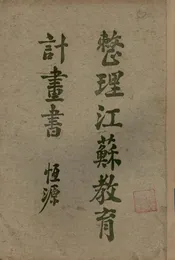 整理江蘇教育
計畫書
恆源